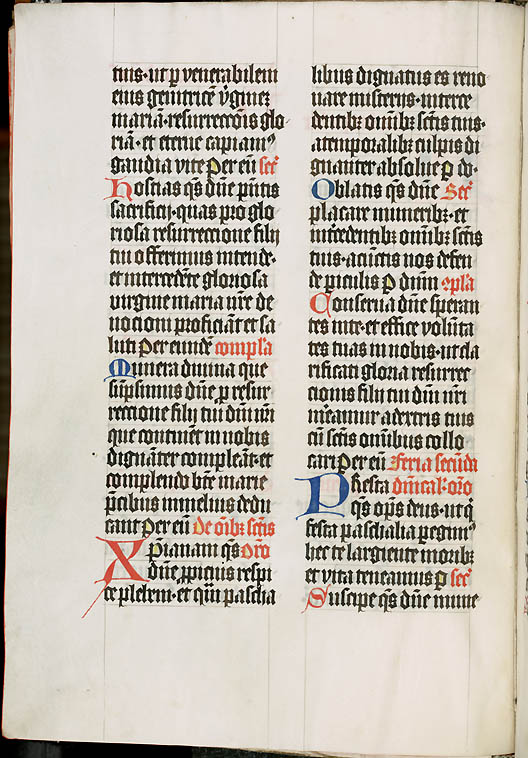 tuus · ut p venerabilem
eius genitricē v̾ginez
mariā · resurrecc̄ois glo
riā · et eterne capiamꝰ
gaudia vite Per eū sec̾
Hostias qs dn̄e p̄ntis
sacrificij · quas pro glo
riosa resurreccione filij
tui offerimus intende ·
et intercedēte gloriosa
virgine maria nr̄e de
uocioni proficiāt et sa
luti Per eundē compl̾a
Munera diuina que
sūpsimus dn̄e p resur
reccione filij tui dn̄i nr̄i
que continēt in nobis
dignāter compleāt · et
complendo bt̄e marie
p̄cibus in melius dedu
cant Per eū De oīb; sc̄tis
Xp̄ianam qs Oro
dn̄e ꝓpicius respi
ce plebem · et qui pascha
libus dignatus es reno
uare misterijs · interce
dentib; om̄ib; sc̄tis tuis ·
a temporalib; culpis di
gnanter absolue p do ·
Oblatis qs dn̄e Sec̾
placare munerib; · et
int̾cedentib; om̄ib; sc̄tis
tuis · a cūctis nos defen
de piculis P dn̄m ꝯpl̾a
Conserua dn̄e speran
tes in te · et effice volūta
tes tuas in nobis · ut cla
rificati gloria resurrec
cionis filij tui dn̄i nr̄i
mereamur a dextris tuis
cū sc̄tis om̄ibus collo
cari Per eū Feria secūda
P festa dn̄ical · oro
qs op̄s deus · ut q
festa paschalia pegimꝰ
hec te largiente morib;
et vita teneamus p sec̾
Suscipe qs dn̄e mune